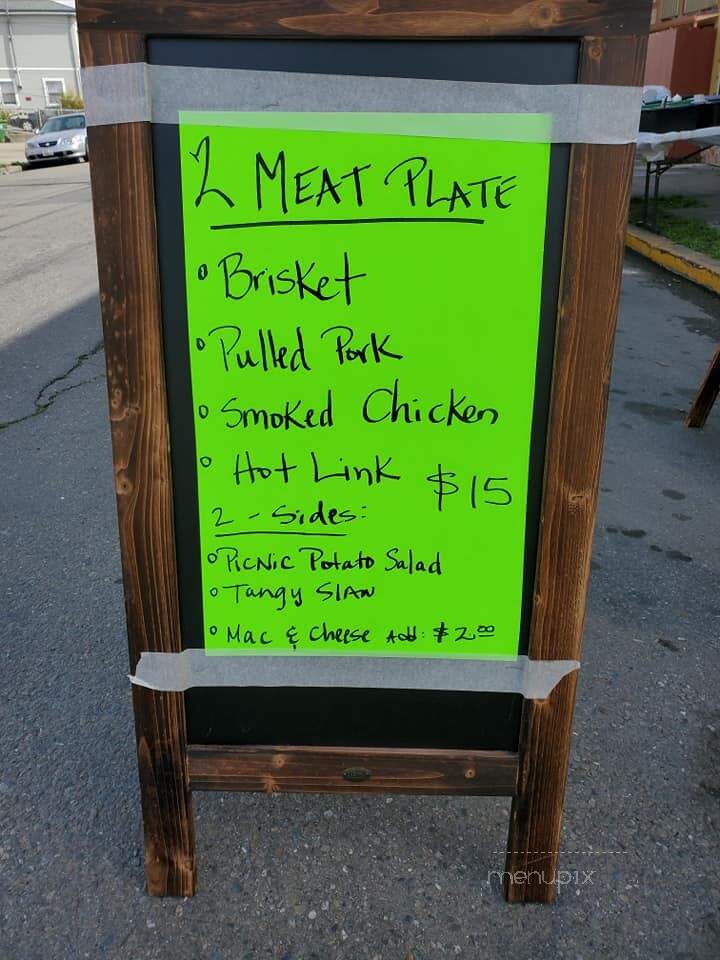 2 MEAT PLATE
Brisket
Pulled Pork
Smoked Chicken
Hot Link $15
2 - Sides:
Picnic Potato Salad
Tangy Slaw
Mac & Cheese Add: $2.00
menupix